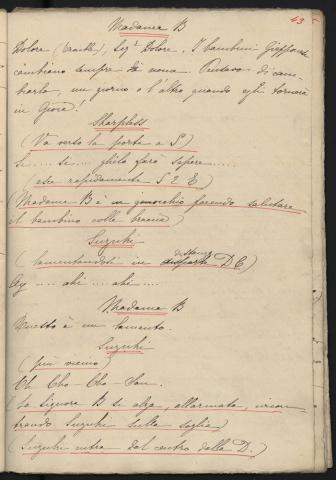 43
Madama B
Dolore (trouble), Sig.ª Dolore. I bambini Giapponesi
cambiano sempre di nome. Pensavo di cam-
biarlo, un giorno o l'altro quando egli tornerà
in Gioia!
Sharpless
(Va verso la porta a S)
Si .... si .... glielo farò sapere ......
(esce rapidamente S 2 E)
(Madama B è in ginocchio facendo salutare
il bambino colle braccia)
Suzuki
(lamentandosi in D C)
Ay .... ahi .... ahi ....
Madama B
Questo è un lamento.
Suzuki
(più vicino)
Oh Cho-Cho-San.
(La Signora B si alza, allarmata, incon-
trando Suzuki sulla soglia)
(Suzuki entra dal centro dalla D.)